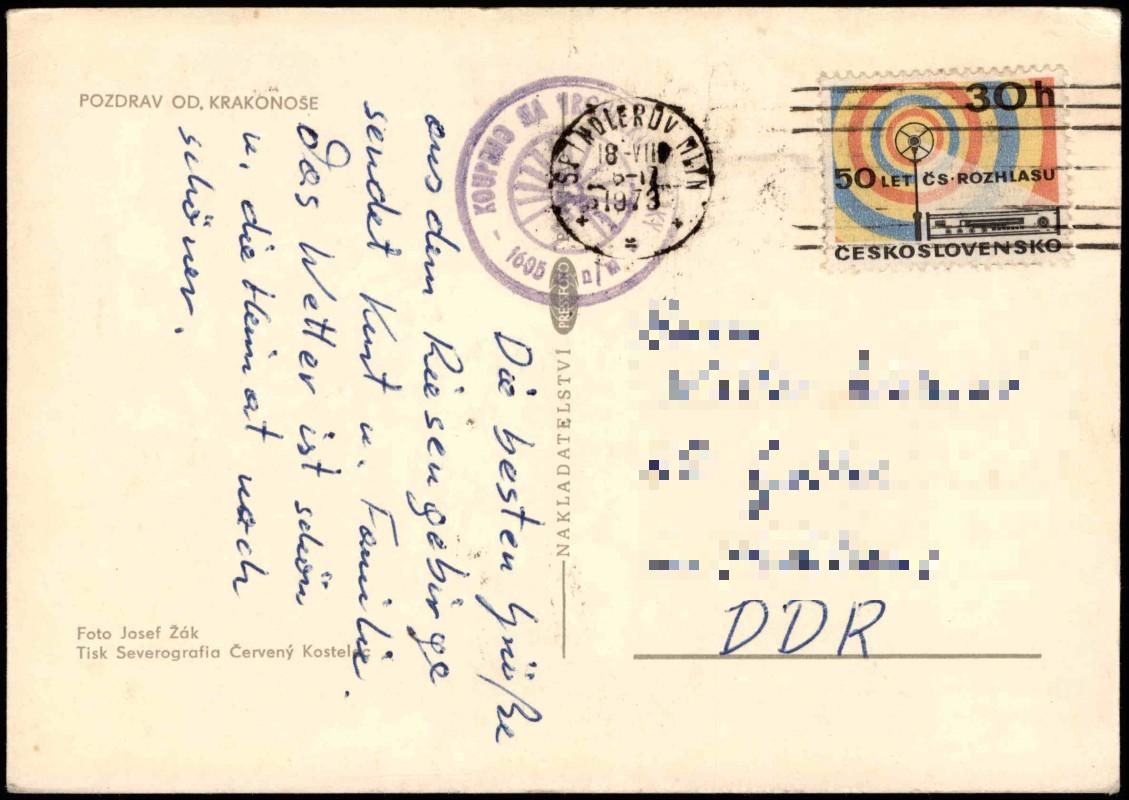 POZDRAV OD KRAKONOŠE
Die besten Grüße
aus dem Riesengebirge
sendet Kurt u. Familie.
Das Wetter ist schön
u. die Heimat noch
schöner.
Foto Josef Žák
Tisk Severografia Červený Kostelec
NAKLADATELSTVÍ
PRESSFOTO
KOUPENO NA
1605 m/n
ŠPINDLERŮV MLÝN
18-VIII
1973
30h
50 LET ČS·ROZHLASU
ČESKOSLOVENSKO
DDR